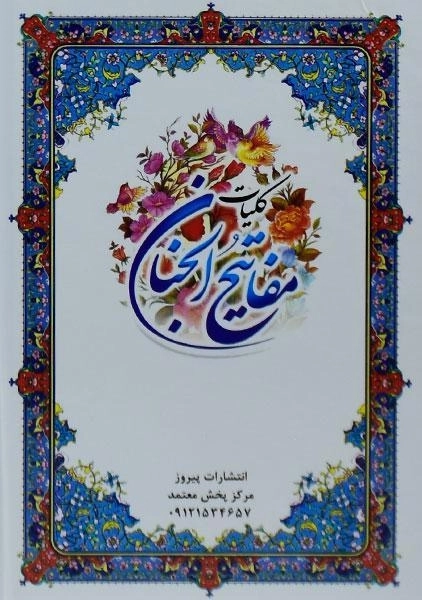 کلیات
مفاتیح الجنان
انتشارات پیروز
مرکز پخش معتمد
۰۹۱۲۱۵۳۴۶۵۷